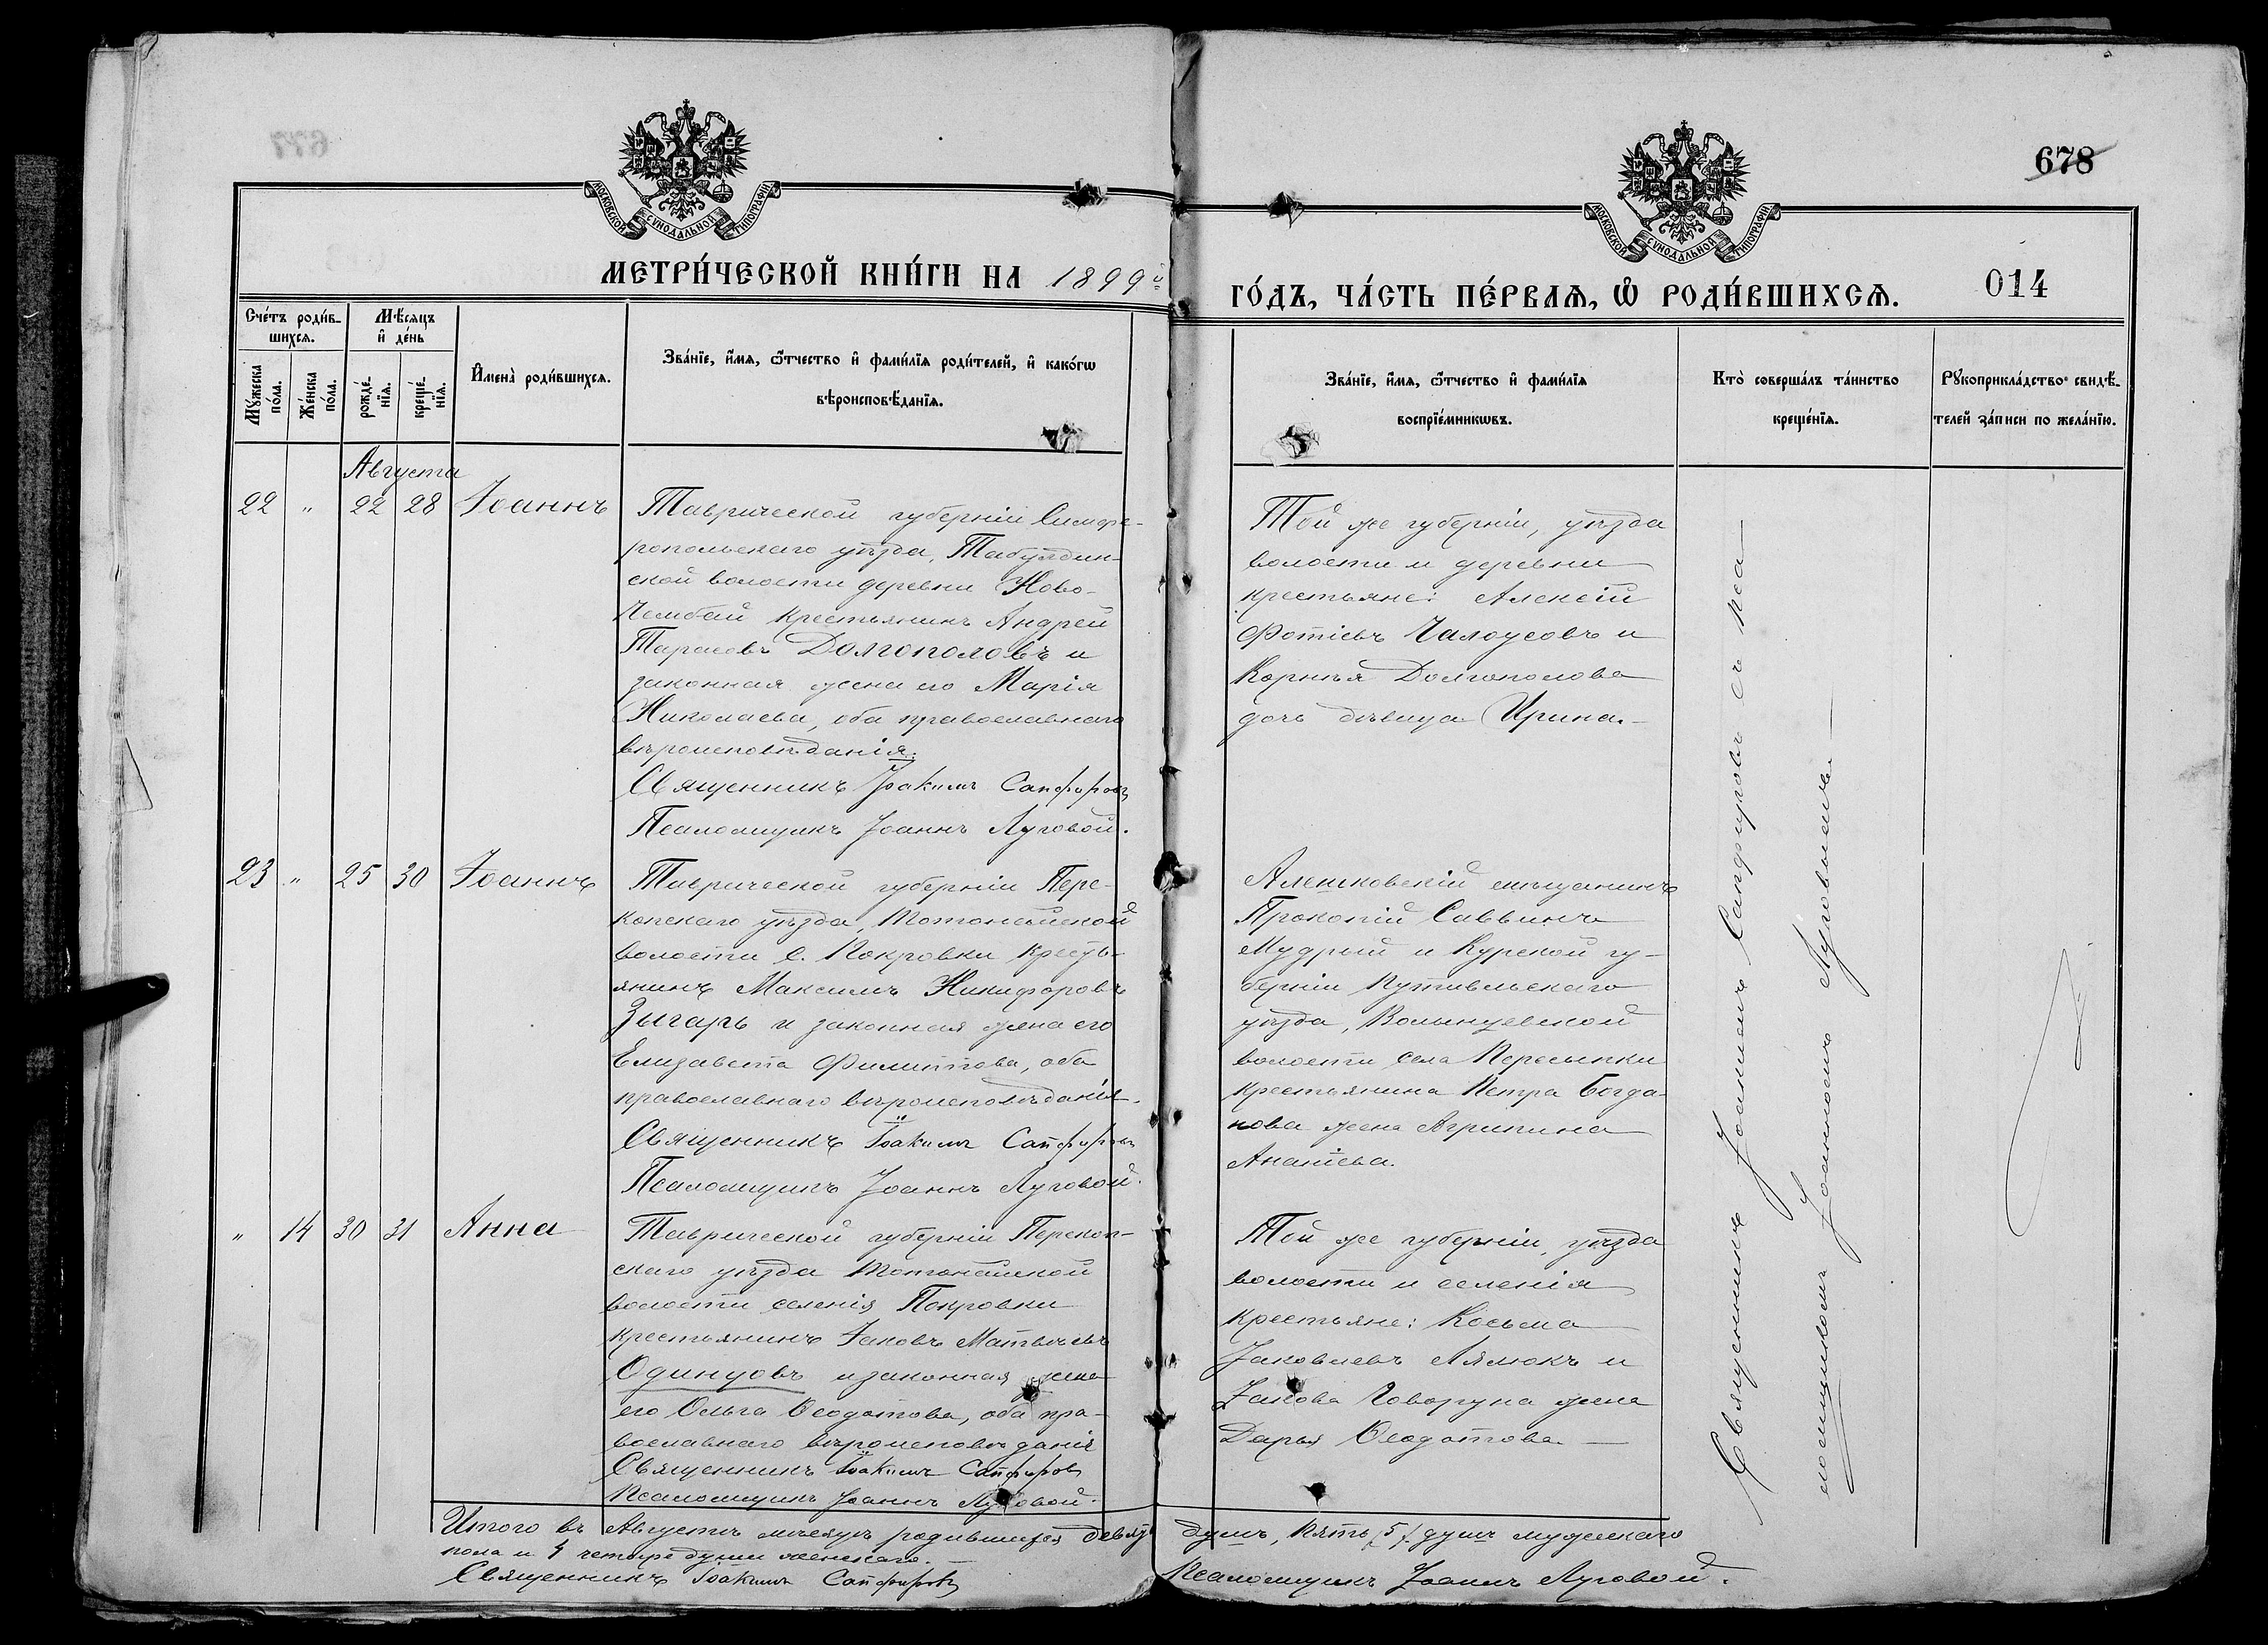 678
МОСКОВСКОЙ СѴНОДАЛЬНОЙ ТИПОГРАФІИ
МОСКОВСКОЙ СѴНОДАЛЬНОЙ ТИПОГРАФІИ
МЕТРИ́ЧЕСКОЙ КНИ́ГИ НА 1899й
ГО́ДЪ, ЧА́СТЬ ПЕ́РВАѦ, Ѽ РОДИ́ВШИХСѦ.
014
Сче́тъ роди́в-
шихсѧ.
Му́жеска
по́ла.
Же́нска
по́ла.
Мѣ́сѧцъ
и҆ де́нь
рожде́-
нїѧ.
креще́-
нїѧ.
И҆мена̀ роди́вшихсѧ.
Зва́нїе, и҆́мѧ, ѻ҆́тчество и҆ фами́лїѧ роди́телей, и҆ како́гѡ
вѣроисповѣ́данїѧ.
Зва́нїе, и҆́мѧ, ѻ҆́тчество и҆ фами́лїѧ
воспрїе́мникѡвъ.
Кто̀ соверша́лъ та́инство
креще́нїѧ.
Рꙋкоприкла́дство свидѣ́-
телей за́писи по жела́нїю.
Августа
22 " 22 28 Іоаннъ
Таврической губерніи Симфе-
ропольскаго уѣзда, Табулдин-
ской волости деревни Ново-
Чембай крестьянинъ Андрей
Тарасовъ Долгополовъ и
законная жена его Марія
Николаева, оба православнаго
вѣроисповѣданія.
Священникъ Іоакимъ Сапфировъ
Псаломщикъ Іоаннъ Луговой.
Той же губерніи, уѣзда
волости и деревни
крестьяне: Алексій
Фотіевъ Чалоусовъ и
Корнѣя Долгополова
дочь дѣвица Ирина.
23 " 25 30 Іоаннъ
Таврической губерніи Пере-
копскаго уѣзда, Тотонайской
волости с. Покровки кресть-
янинъ Максимъ Никифоровъ
Зыгарь и законная жена его
Елизавета Филиппова, оба
православнаго вѣроисповѣданія.
Священникъ Іоакимъ Сапфировъ
Псаломщикъ Іоаннъ Луговой.
Алешковскій мѣщанинъ
Прокопій Саввинъ
Мудрый и Курской гу-
берніи Путивльскаго
уѣзда, Волынцевской
волости села Пересыпки
крестьянина Петра Богда-
нова жена Агрипина
Ананіева.
" 14 30 31 Анна
Таврической губерніи Перекоп-
скаго уѣзда Тотонайской
волости селенія Покровки
крестьянинъ Іаковъ Матвѣевъ
Одинцовъ и законная жена
его Ольга Ѳеодотова, оба пра-
вославнаго вѣроисповѣданія
Священникъ Іоакимъ Сапфировъ
Псаломщикъ Іоаннъ Луговой.
Той же губерніи, уѣзда
волости и селенія
крестьяне: Косьма
Іаковлевъ Лямокъ и
Іакова Говоруна жена
Дарья Ѳеодотова.
Священникъ Іоакимъ Сапфировъ съ пса-
ломщикомъ Іоанномъ Луговымъ.
Итого въ Августѣ мѣсяцѣ родившихся девять душъ, пять /5/ душъ мужескаго
пола и 4 четыре души женскаго.
Священникъ Іоакимъ Сапфировъ Псаломщикъ Іоаннъ Луговой.